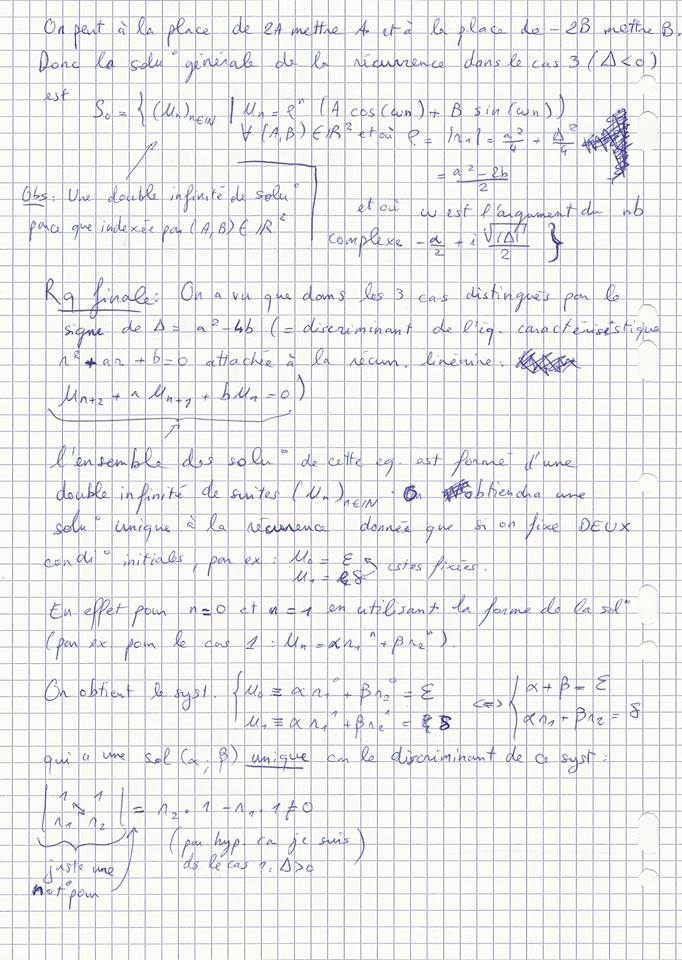 On peut à la place de 2A mettre A et à la place de -2B mettre B.
Donc la solu° générale de la récurrence dans le cas 3 (Δ<0)
est S₀ = { (Uₙ)ₙ∈ℕ | Uₙ = ρⁿ (A cos(ωn) + B sin(ωn))
∀ (A,B) ∈ ℝ² et où ρ = |r₁| = a²/4 + Δ²/4
= (a²-2b)/2
Obs: Une double infinité de solu°
parce que indexée par (A,B) ∈ ℝ²
et où ω est l'argument du nb
complexe -a/2 + i √|Δ|/2 }
Rq finale: On a vu que dans les 3 cas distingués par le
signe de Δ = a²-4b (= discriminant de l'éq. caractérisistique
r² + ar + b = 0 attachée à la récurr. linéaire:
Uₙ₊₂ + a Uₙ₊₁ + bUₙ = 0)
l'ensemble des solu° de cette eq. est formé d'une
double infinité de suites (Uₙ)ₙ∈ℕ. On obtiendra une
solu° unique à la récurrence donnée que si on fixe DEUX
condi° initiales, par ex: U₀ = ε
U₁ = δ cstes fixées.
En effet pour n=0 et n=1 en utilisant la forme de la sol°
(par ex pour le cas 1: Uₙ = αr₁ⁿ + βr₂ⁿ).
On obtient le syst. { U₀ ≡ αr₁⁰ + βr₂⁰ = ε <=> { α+β = ε
U₁ ≡ αr₁¹ + βr₂¹ = δ αr₁+βr₂ = δ
qui a une sol (α; β) unique car le discriminant de ce syst:
| 1 1 |
| r₁ r₂ | = r₂ · 1 - r₁ · 1 ≠ 0
(par hyp. car je suis
ds le cas 1: Δ>0)
juste une
not° pour